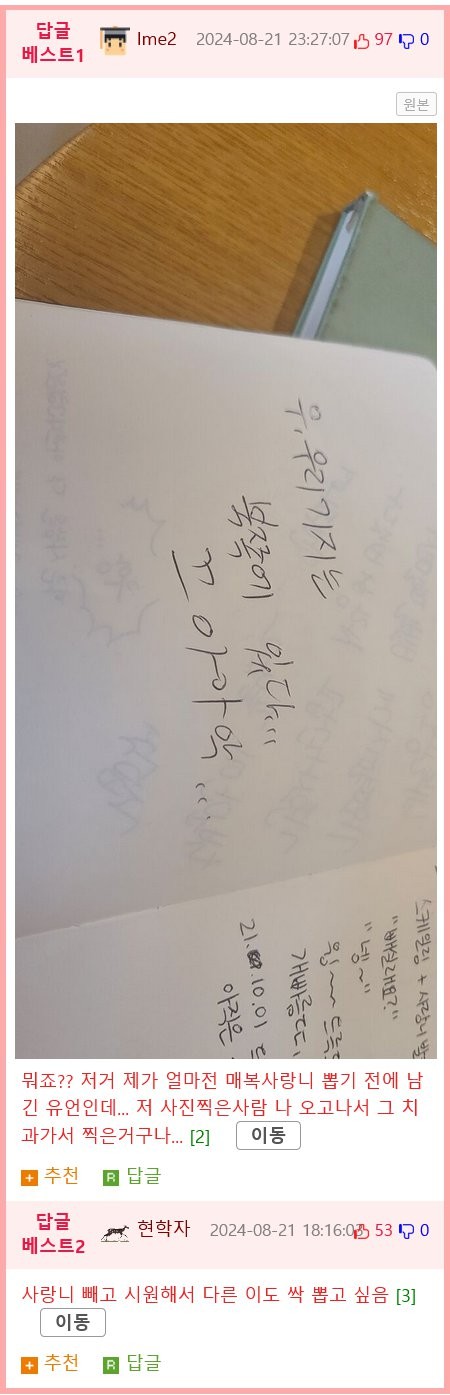 답글
베스트1
lme2
2024-08-21 23:27:07
97
0
원본
우, 우리기지는
북쪽에 있다...
끄아아악...
스케일링 + 사랑니
"빼실래요?"
"넹~"
21. 10.01
아직은
뭐죠?? 저거 제가 얼마전 매복사랑니 뽑기 전에 남
긴 유언인데... 저 사진찍은사람 나 오고나서 그 치
과가서 찍은거구나... [2] 이동
추천 R 답글
답글
베스트2
현학자
2024-08-21 18:16:03
53
0
사랑니 빼고 시원해서 다른 이도 싹 뽑고 싶음 [3]
이동
추천 R 답글